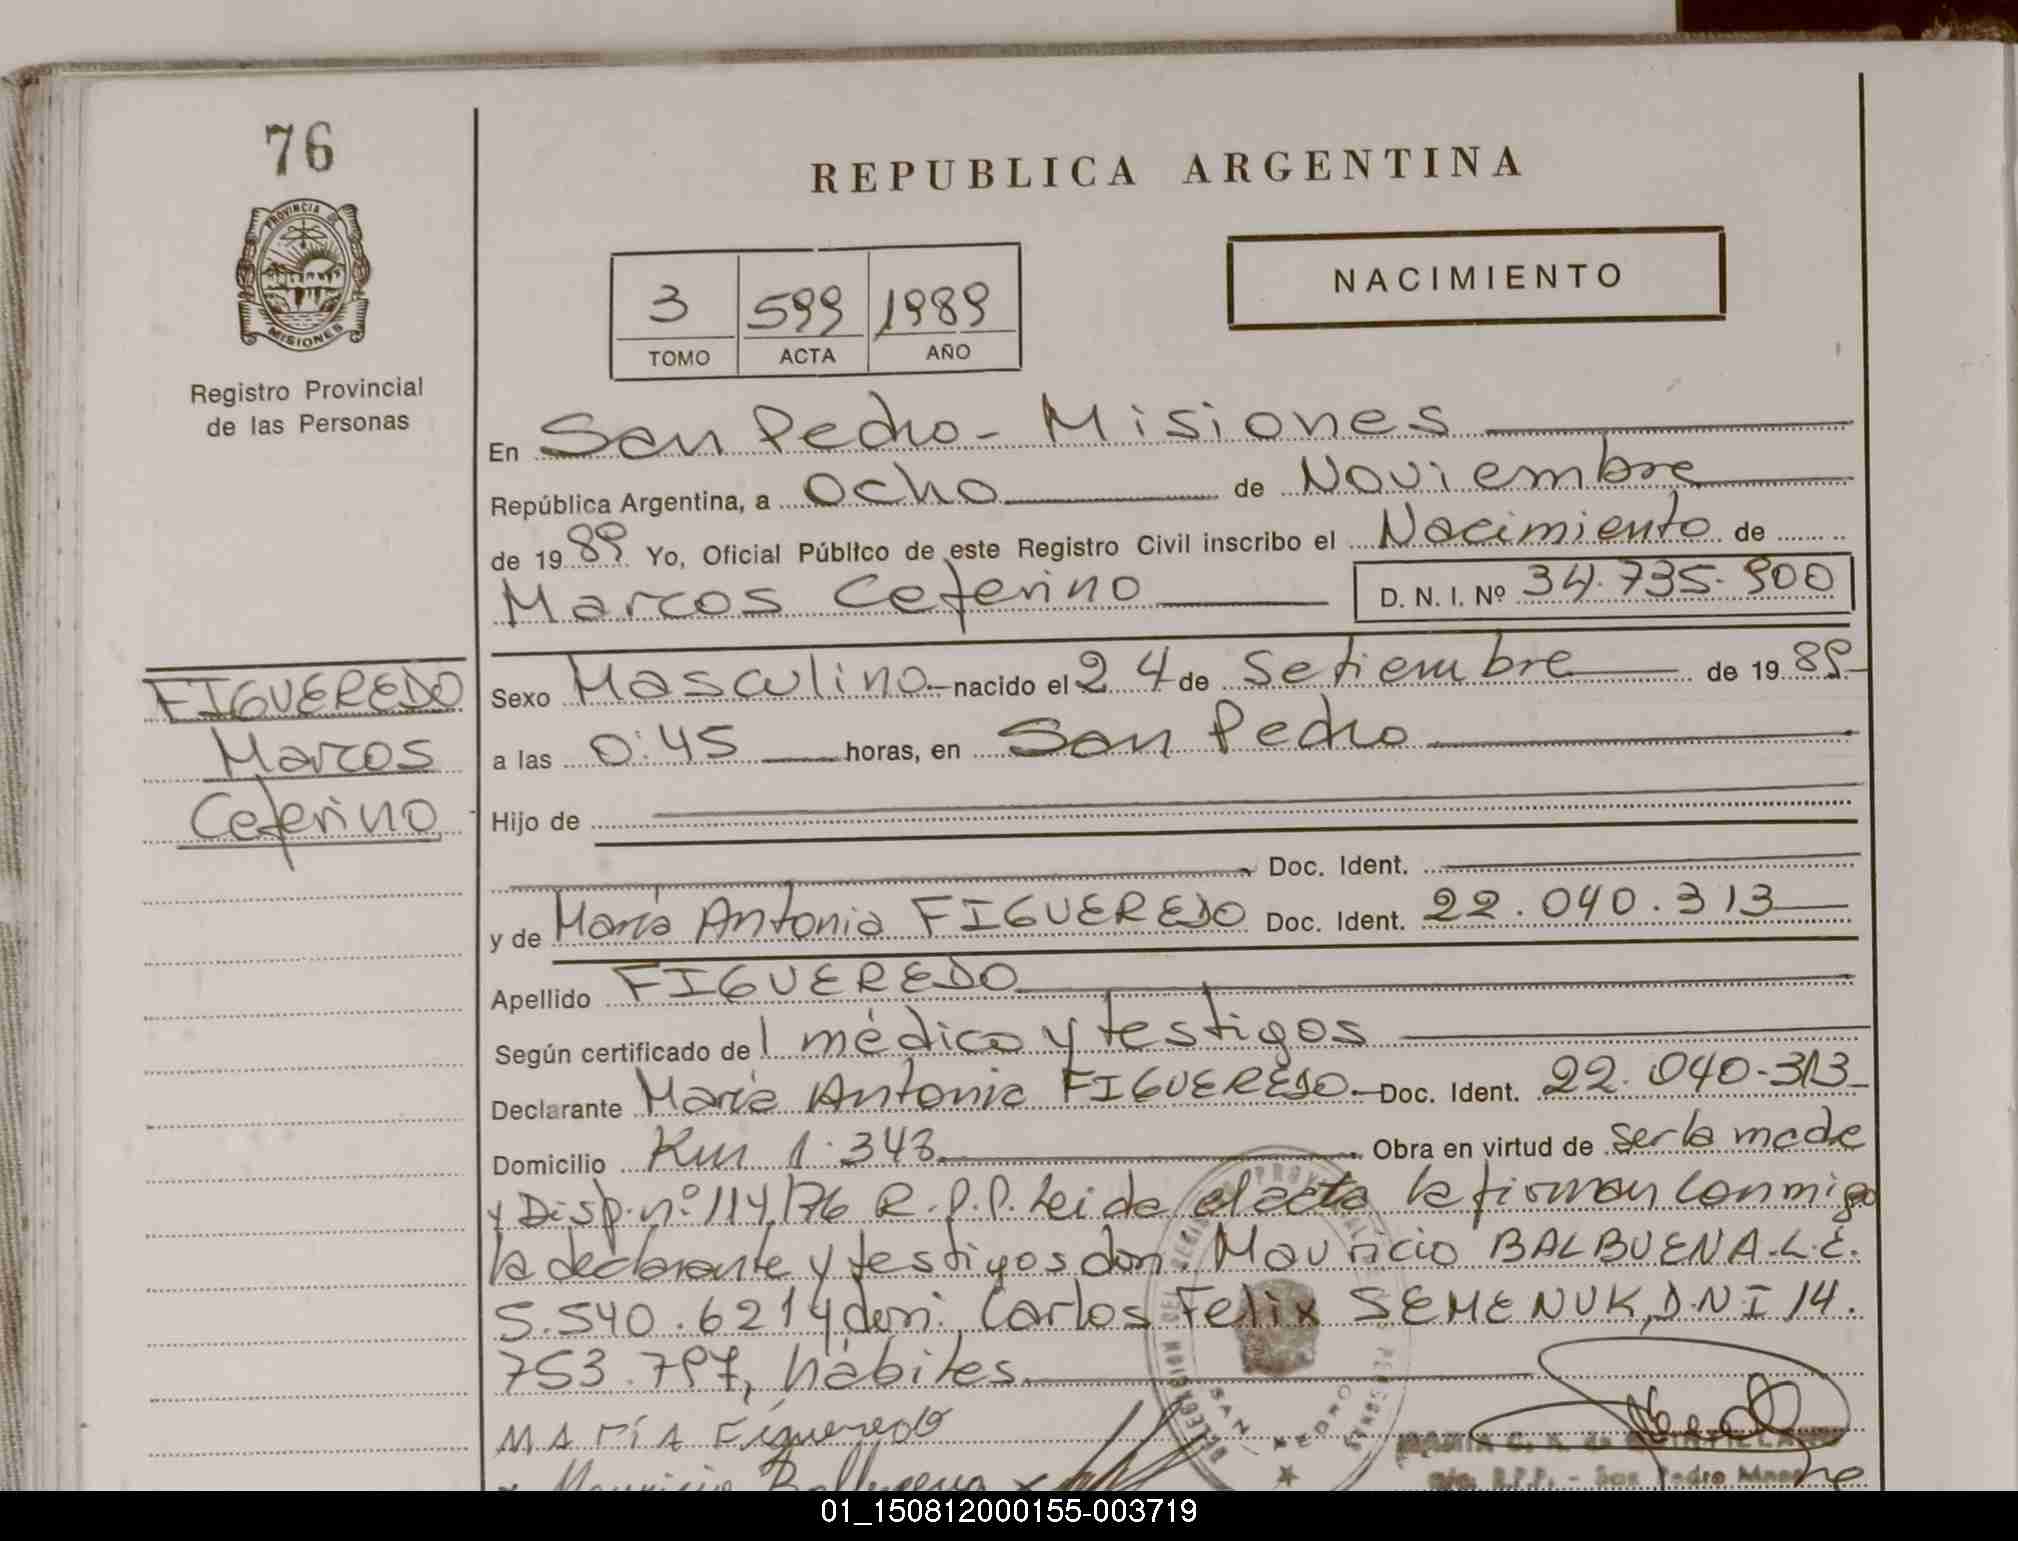 76
PROVINCIA DE
MISIONES
Registro Provincial
de las Personas
REPUBLICA ARGENTINA
3 599 1989
TOMO ACTA AÑO
NACIMIENTO
En San Pedro - Misiones
República Argentina, a Ocho de Noviembre
de 1989. Yo, Oficial Público de este Registro Civil inscribo el Nacimiento de
Marcos Ceferino D. N. I. Nº 34.735.900
FIGUEREDO
Marcos
Ceferino
Sexo Masculino nacido el 24 de Setiembre de 1989
a las 0:45 horas, en San Pedro
Hijo de
Doc. Ident.
y de María Antonia FIGUEREDO Doc. Ident. 22.040.313
Apellido FIGUEREDO
Según certificado de 1 médico y testigos
Declarante María Antonia FIGUEREDO Doc. Ident. 22.040.313
Domicilio Km 1.343 Obra en virtud de ser la madre
y Disp. nº 114/76 R.P.P. Leida el acta la firman conmigo
la declarante y testigos don: Mauricio BALBUENA L.E.
5.540.621 y don: Carlos Felix SEMENUK, D.N.I 14.
753.797, hábiles.
MARíA Figueredo
Mauricio Balbuena
SAN PEDRO
R.P.P. - San Pedro Mnes
01_150812000155-003719